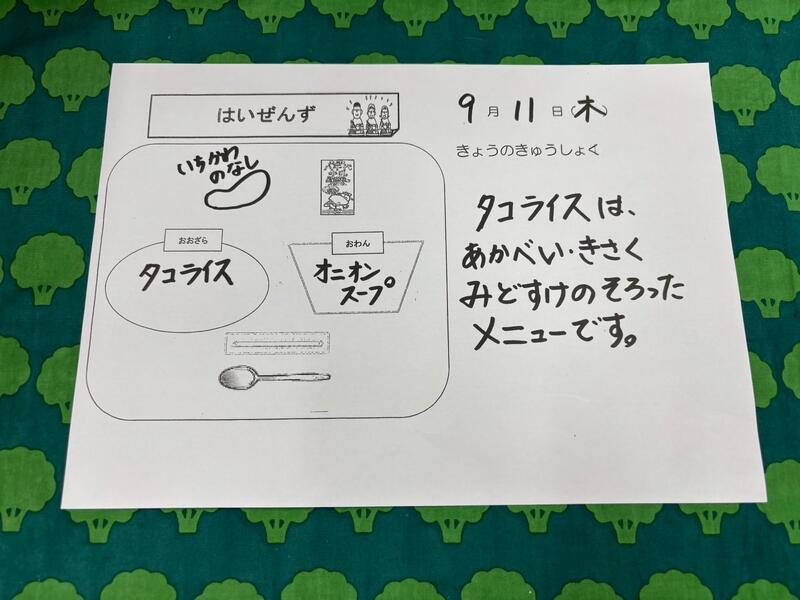 はいぜんず
9月11日(木)
きょうのきゅうしょく
いちかわ
のなし
おおざら
タコライス
おわん
オニオン
スープ
タコライスは、
あかべい・きさく
みどすけのそろった
メニューです。